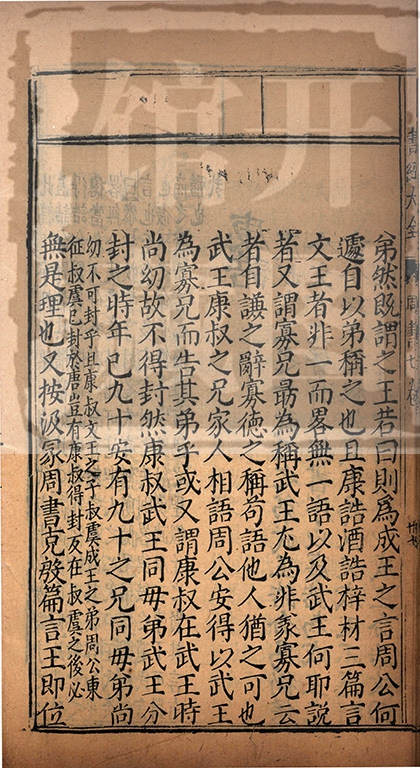 弟然既謂之王若曰則為成王之言周公何
遽自以弟稱之也且康誥酒誥梓材三篇言
文王者非一而畧無一語以及武王何耶說
者又謂寡兄最為稱武王尤為非義寡兄云
者自謙之辭寡德之稱苟語他人猶之可也
武王康叔之兄家人相語周公安得以武王
為寡兄而告其弟乎或又謂康叔在武王時
尚幼故不得封然康叔武王同毋弟武王分
封之時年已九十安有九十之兄同毋弟尚
幼不可封乎且康叔文王之子叔虞成王之弟周公東
征叔虞已封於唐豈有康叔得封反在叔虞之後必
無是理也又按汲冡周書克殷篇言王即位